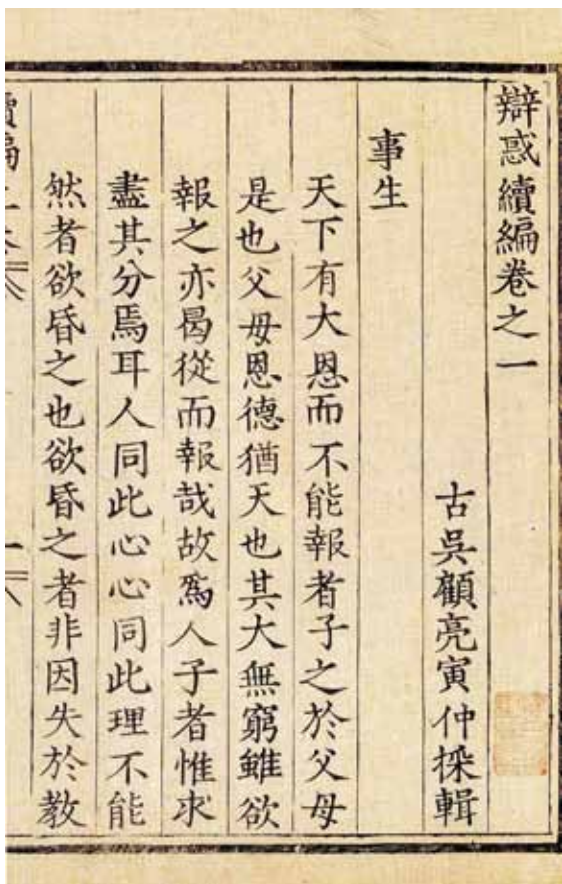 辯惑續編卷之一
古吳顧亮寅仲採輯
事生
天下有大恩而不能報者子之於父母
是也父母恩德猶天也其大無窮雖欲
報之亦曷從而報哉故爲人子者惟求
盡其分焉耳人同此心心同此理不能
然者欲昏之也欲昏之者非因失於教